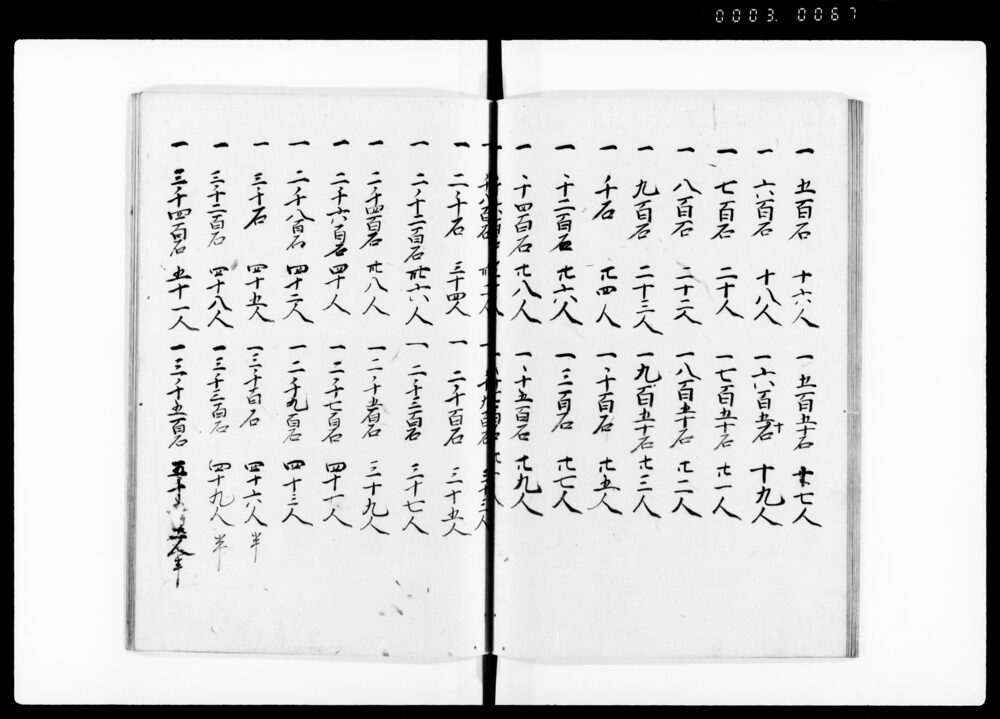 0003. 0067
一 五百石 十六人 一 五百五十石 十七人
一 六百石 十八人 一 六百五十石 十九人
一 七百石 二十人 一 七百五十石 廿一人
一 八百石 二十二人 一 八百五十石 廿二人
一 九百石 二十三人 一 九百五十石 廿三人
一 千石 廿四人 一 千百石 廿五人
一 千二百石 廿六人 一 千三百石 廿七人
一 千四百石 廿八人 一 千五百石 廿九人
一 二千石 三十四人 一 二千百石 三十五人
一 二千二百石 卅六人 一 二千三百石 三十七人
一 二千四百石 卅八人 一 二千五百石 三十九人
一 二千六百石 四十人 一 二千七百石 四十一人
一 二千八百石 四十二人 一 二千九百石 四十三人
一 三千石 四十五人 一 三千百石 四十六人半
一 三千二百石 四十八人 一 三千三百石 四十九人半
一 三千四百石 五十一人 一 三千五百石